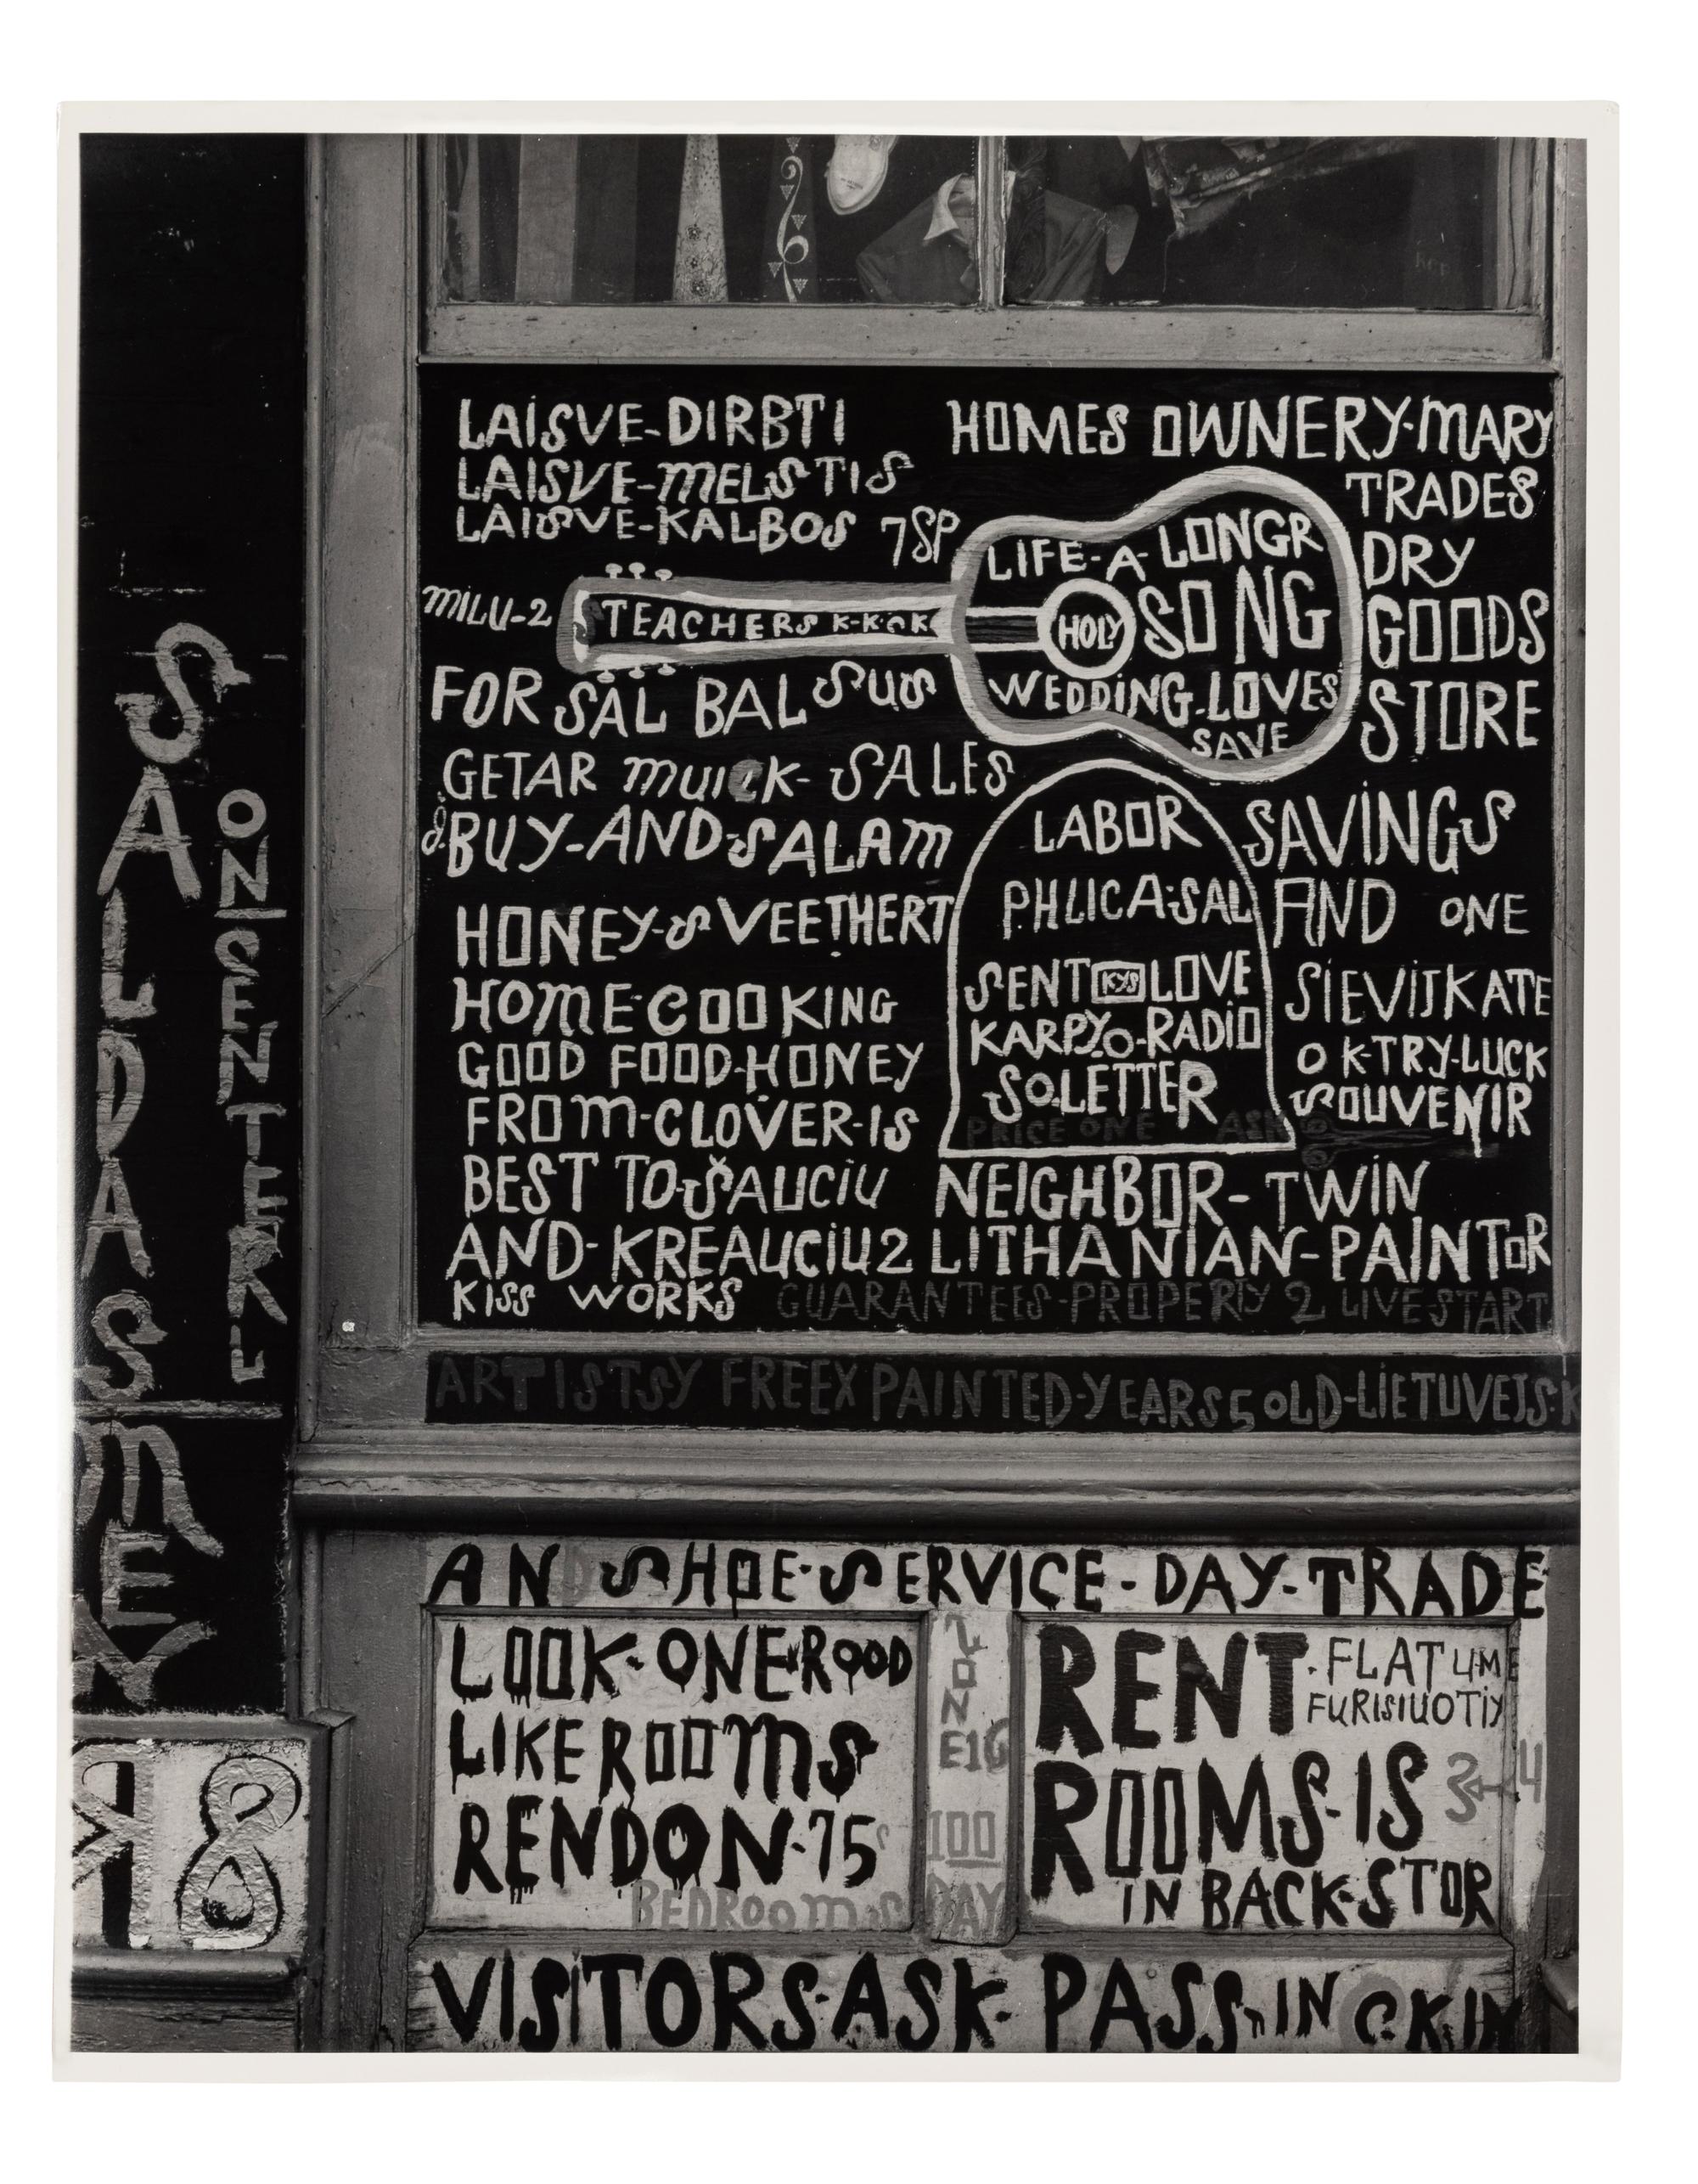 SALDAS MEY
ONSENTERL
LAISVE-DIRBTI
LAISVE-MELSTIS
LAISVE-KALBOS 7SP
MILU-2
STEACHERS K-K-CK
FOR SAL BALSUS
GETAR
SALES
BUY-AND-SALAM
HONEY-SVEETHERT
HOME-COOKING
GOOD FOOD-HONEY
FROM-CLOVER-IS
BEST TO-ŠAUCIU
AND-KREAUCIU2
KISS WORKS
HOMES OWNERY-MARY
TRADES
DRY
GOODS
STORE
LIFE-A-LONGR
HOLY SONG
WEDDING-LOVES
SAVE
LABOR
PHLICA-SAL
SENT KYS LOVE
KARPY.O-RADIO
SO.LETTER
PRICE ONE ASK
SAVINGS
AND ONE
SIEVIJKATE
OK-TRY-LUCK
SOUVENIR
NEIGHBOR-TWIN
LITHANIAN-PAINTOR
GUARANTEES-PROPERTY 2 LIVE-START
ARTISTSY FREEX PAINTED-YEARS 5 OLD-LIETUVEJS-K
AND SHOE-SERVICE-DAY-TRADE
LOOK-ONE ROOD
LIKE ROOMS
RENDON-75
BEDROOMS
E16
100
DAY
RENT-FLAT 4-ME
FURISIUOTIY
ROOMS-IS 3 4
IN BACK-STOR
VISITORS-ASK-PASS-IN CKIN
8